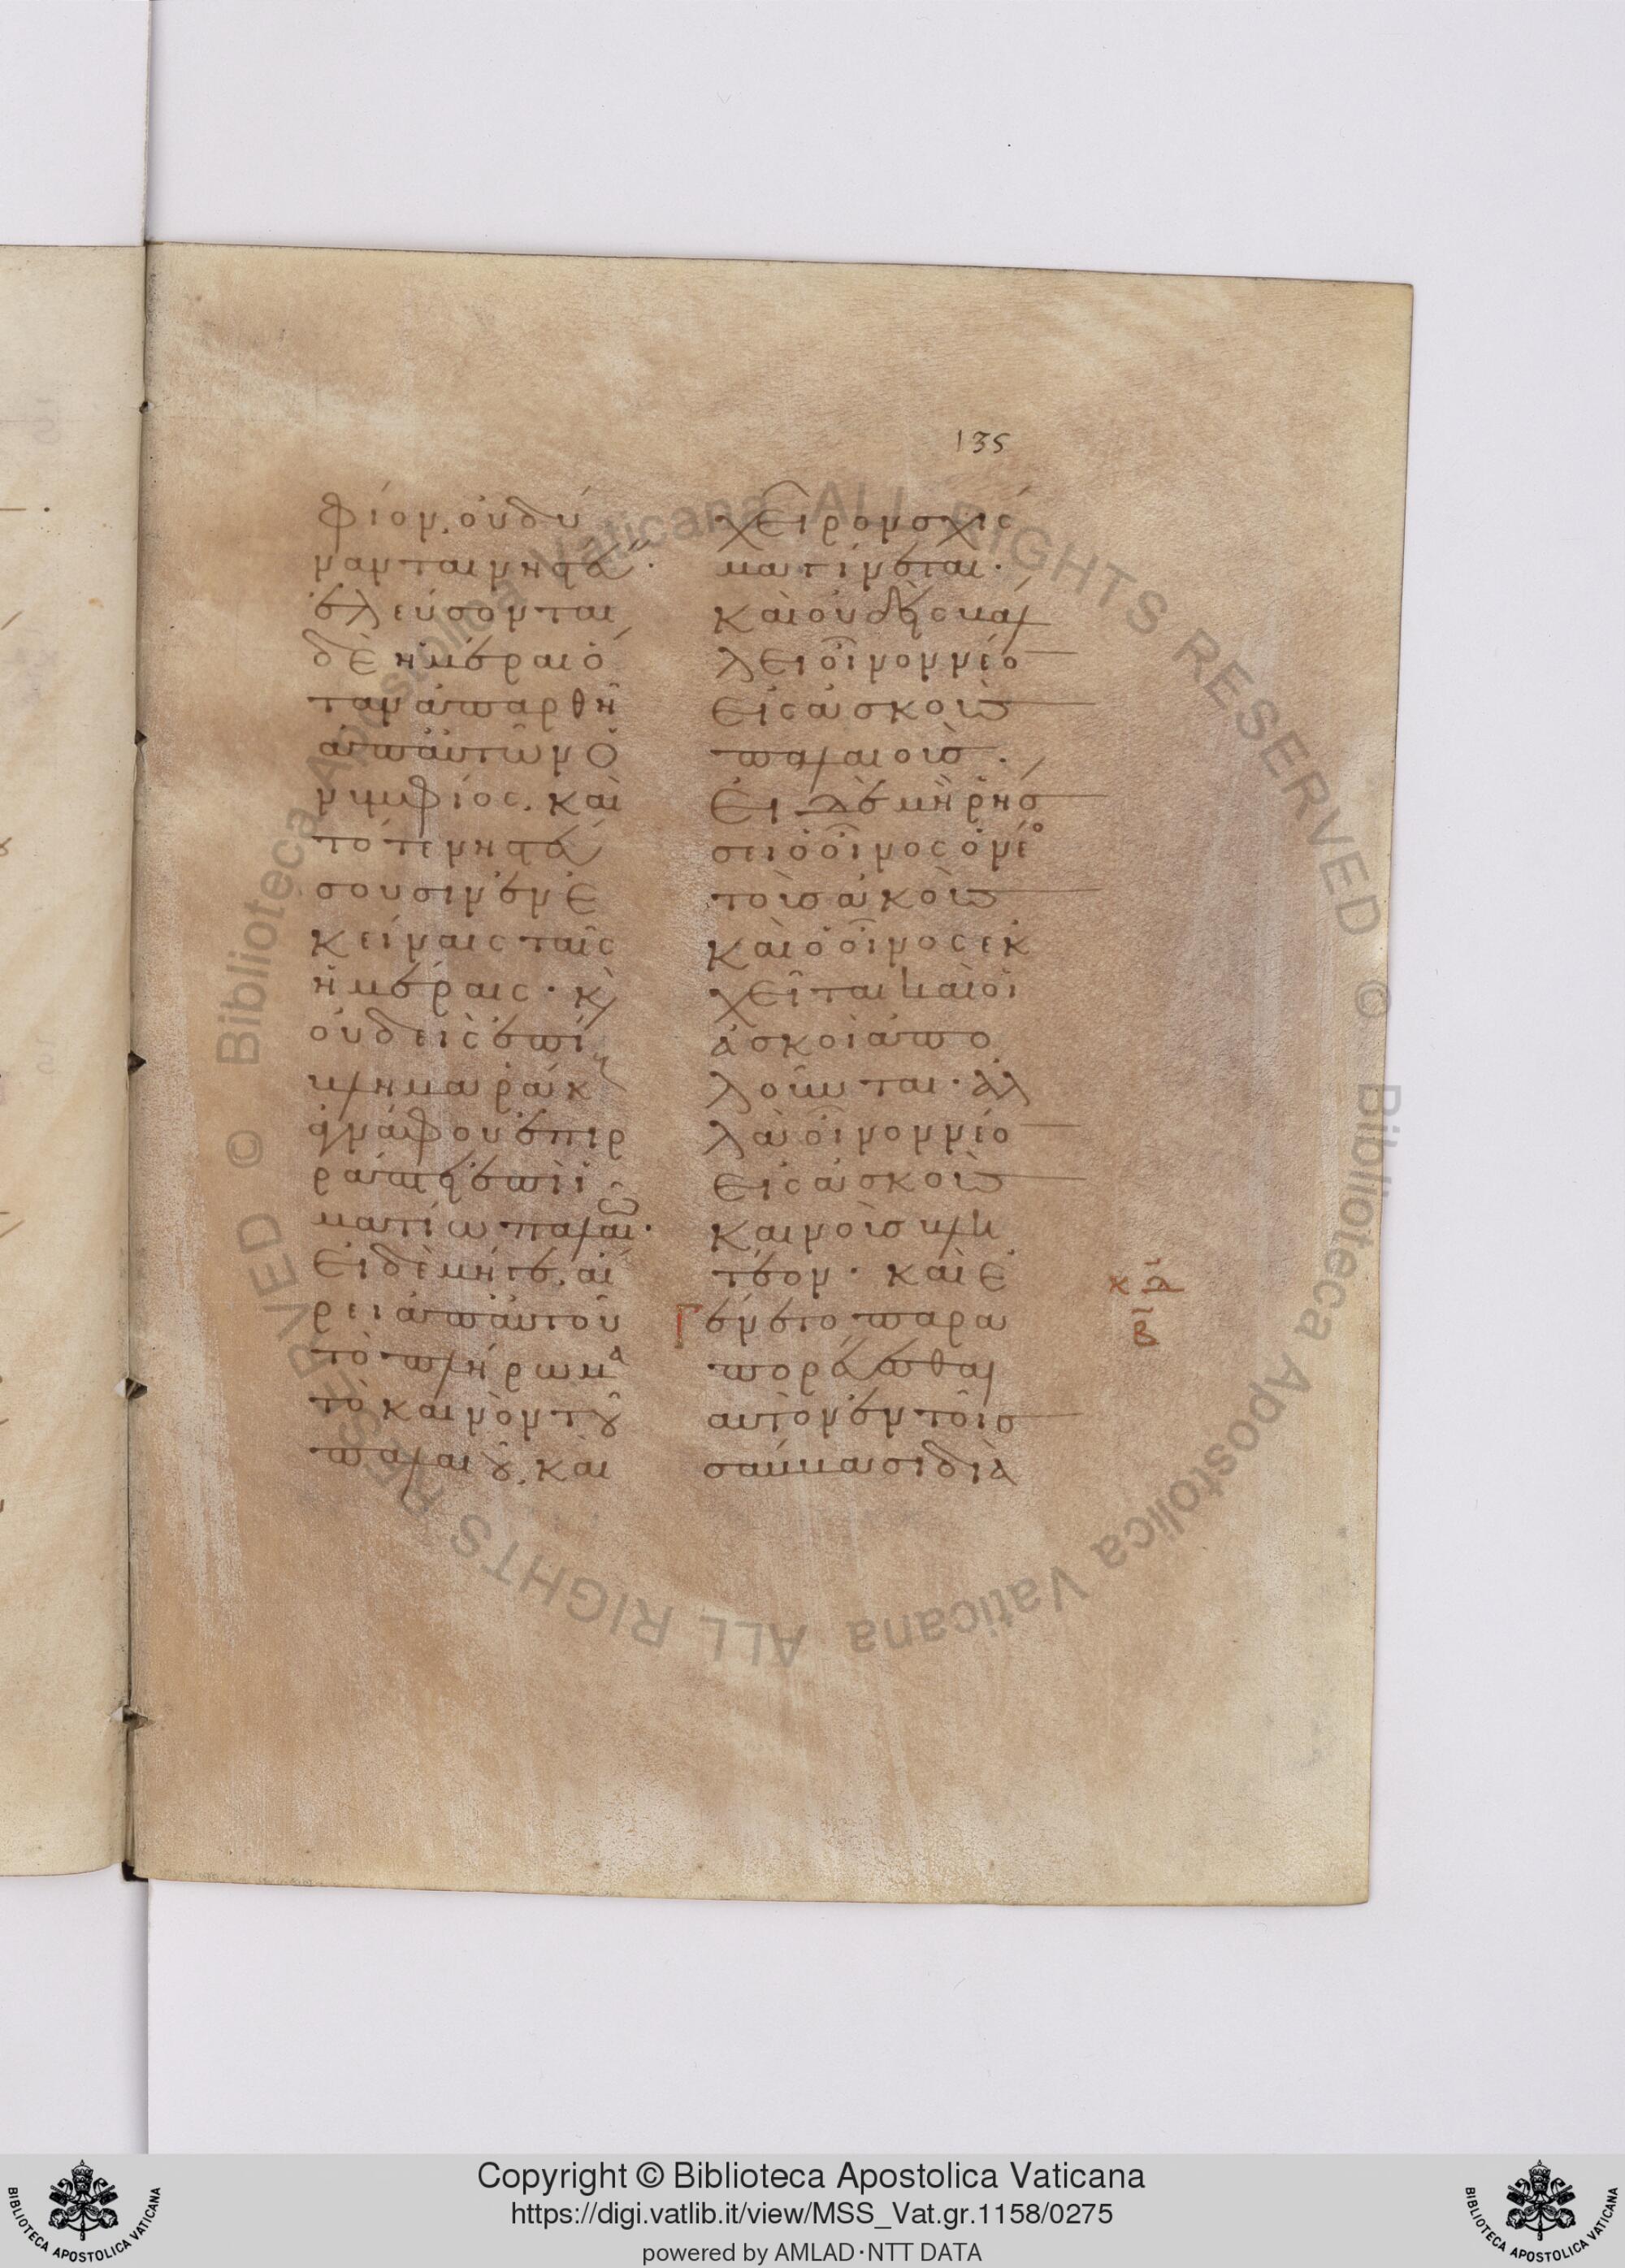 135
φίον, οὐ δύ
νανται νηστεύ(ειν)·
ἐλεύσονται
δὲ ἡμέραι ὅ
ταν ἀπαρθῆ
ἀπ' αὐτῶν ὁ
νυμφίος, καὶ
τότε νηστεύ
σουσιν ἐν ἐ
κείναις ταῖς
ἡμέραις· κ(αὶ)
οὐδεὶς ἐπί
βλημα ῥάκους
ἀγνάφου ἐπιρ
ράπτει ἐπὶ ἱ
ματίω παλαιῶ·
εἰ δὲ μή γε, αἴ
ρει ἀπ' αὐτοῦ
τὸ πλήρωμα
τὸ καινὸν τοῦ
παλαιοῦ, καὶ
χεῖρον σχίς
μα γίνεται·
καὶ οὐδεὶς βάλ
λει οἶνον νέο(ν)
εἰς ἀσκοὺ(ς)
παλαιούς·
εἰ δὲ μὴ ῥήσ
σει ὁ οἶνος ὁ νέο(ς)
τοὺς ἀσκοὺ(ς)
καὶ ὁ οἶνος ἐκ
χεῖται καὶ οἱ
ἀσκοὶ ἀπο
λοῦνται· ἀλ
λὰ οἶνον νέο(ν)
εἰς ἀσκοὺ(ς)
καινοὺς βλη
τέον· καὶ ἐ
γένετο παρα
πορεύεσθαι
αὐτὸν ἐν τοῖς
σάββασι διὰ
κδ
β
Biblioteca Apostolica Vaticana ALL RIGHTS RESERVED © Biblioteca Apostolica Vaticana ALL RIGHTS RESERVED ©
Copyright © Biblioteca Apostolica Vaticana
https://digi.vatlib.it/view/MSS_Vat.gr.1158/0275
powered by AMLAD·NTT DATA
BIBLIOTECA APOSTOLICA VATICANA
BIBLIOTECA APOSTOLICA VATICANA